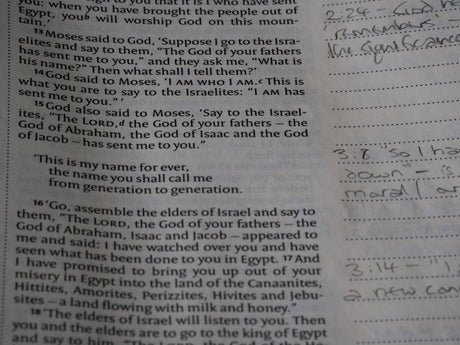 to you that it is I who have sent
you: when you have brought the people out of
Egypt, youᵇ will worship God on this moun-
tain.’
13 Moses said to God, ‘Suppose I go to the Isra-
elites and say to them, “The God of your fathers
has sent me to you,” and they ask me, “What is
his name?” Then what shall I tell them?’
14 God said to Moses, ‘I AM WHO I AM.ᶜ This is
what you are to say to the Israelites: “I AM has
sent me to you.”’
15 God also said to Moses, ‘Say to the Israel-
ites, “The LORD,ᵈ the God of your fathers – the
God of Abraham, the God of Isaac and the God
of Jacob – has sent me to you.”
‘This is my name for ever,
the name you shall call me
from generation to generation.
16 ‘Go, assemble the elders of Israel and say to
them, “The LORD, the God of your fathers – the
God of Abraham, Isaac and Jacob – appeared to
me and said: I have watched over you and have
seen what has been done to you in Egypt. 17 And
I have promised to bring you up out of your
misery in Egypt into the land of the Canaanites,
Hittites, Amorites, Perizzites, Hivites and Jebu-
sites – a land flowing with milk and honey.”
18 ‘The elders of Israel will listen to you. Then
you and the elders are to go to the king of Egypt
and say to him, “The LORD, the God of the He-
2:24 – God
remembers
the significance
3:8 "so I ha
down" – is
moral / ar
3:14 – "I
a new